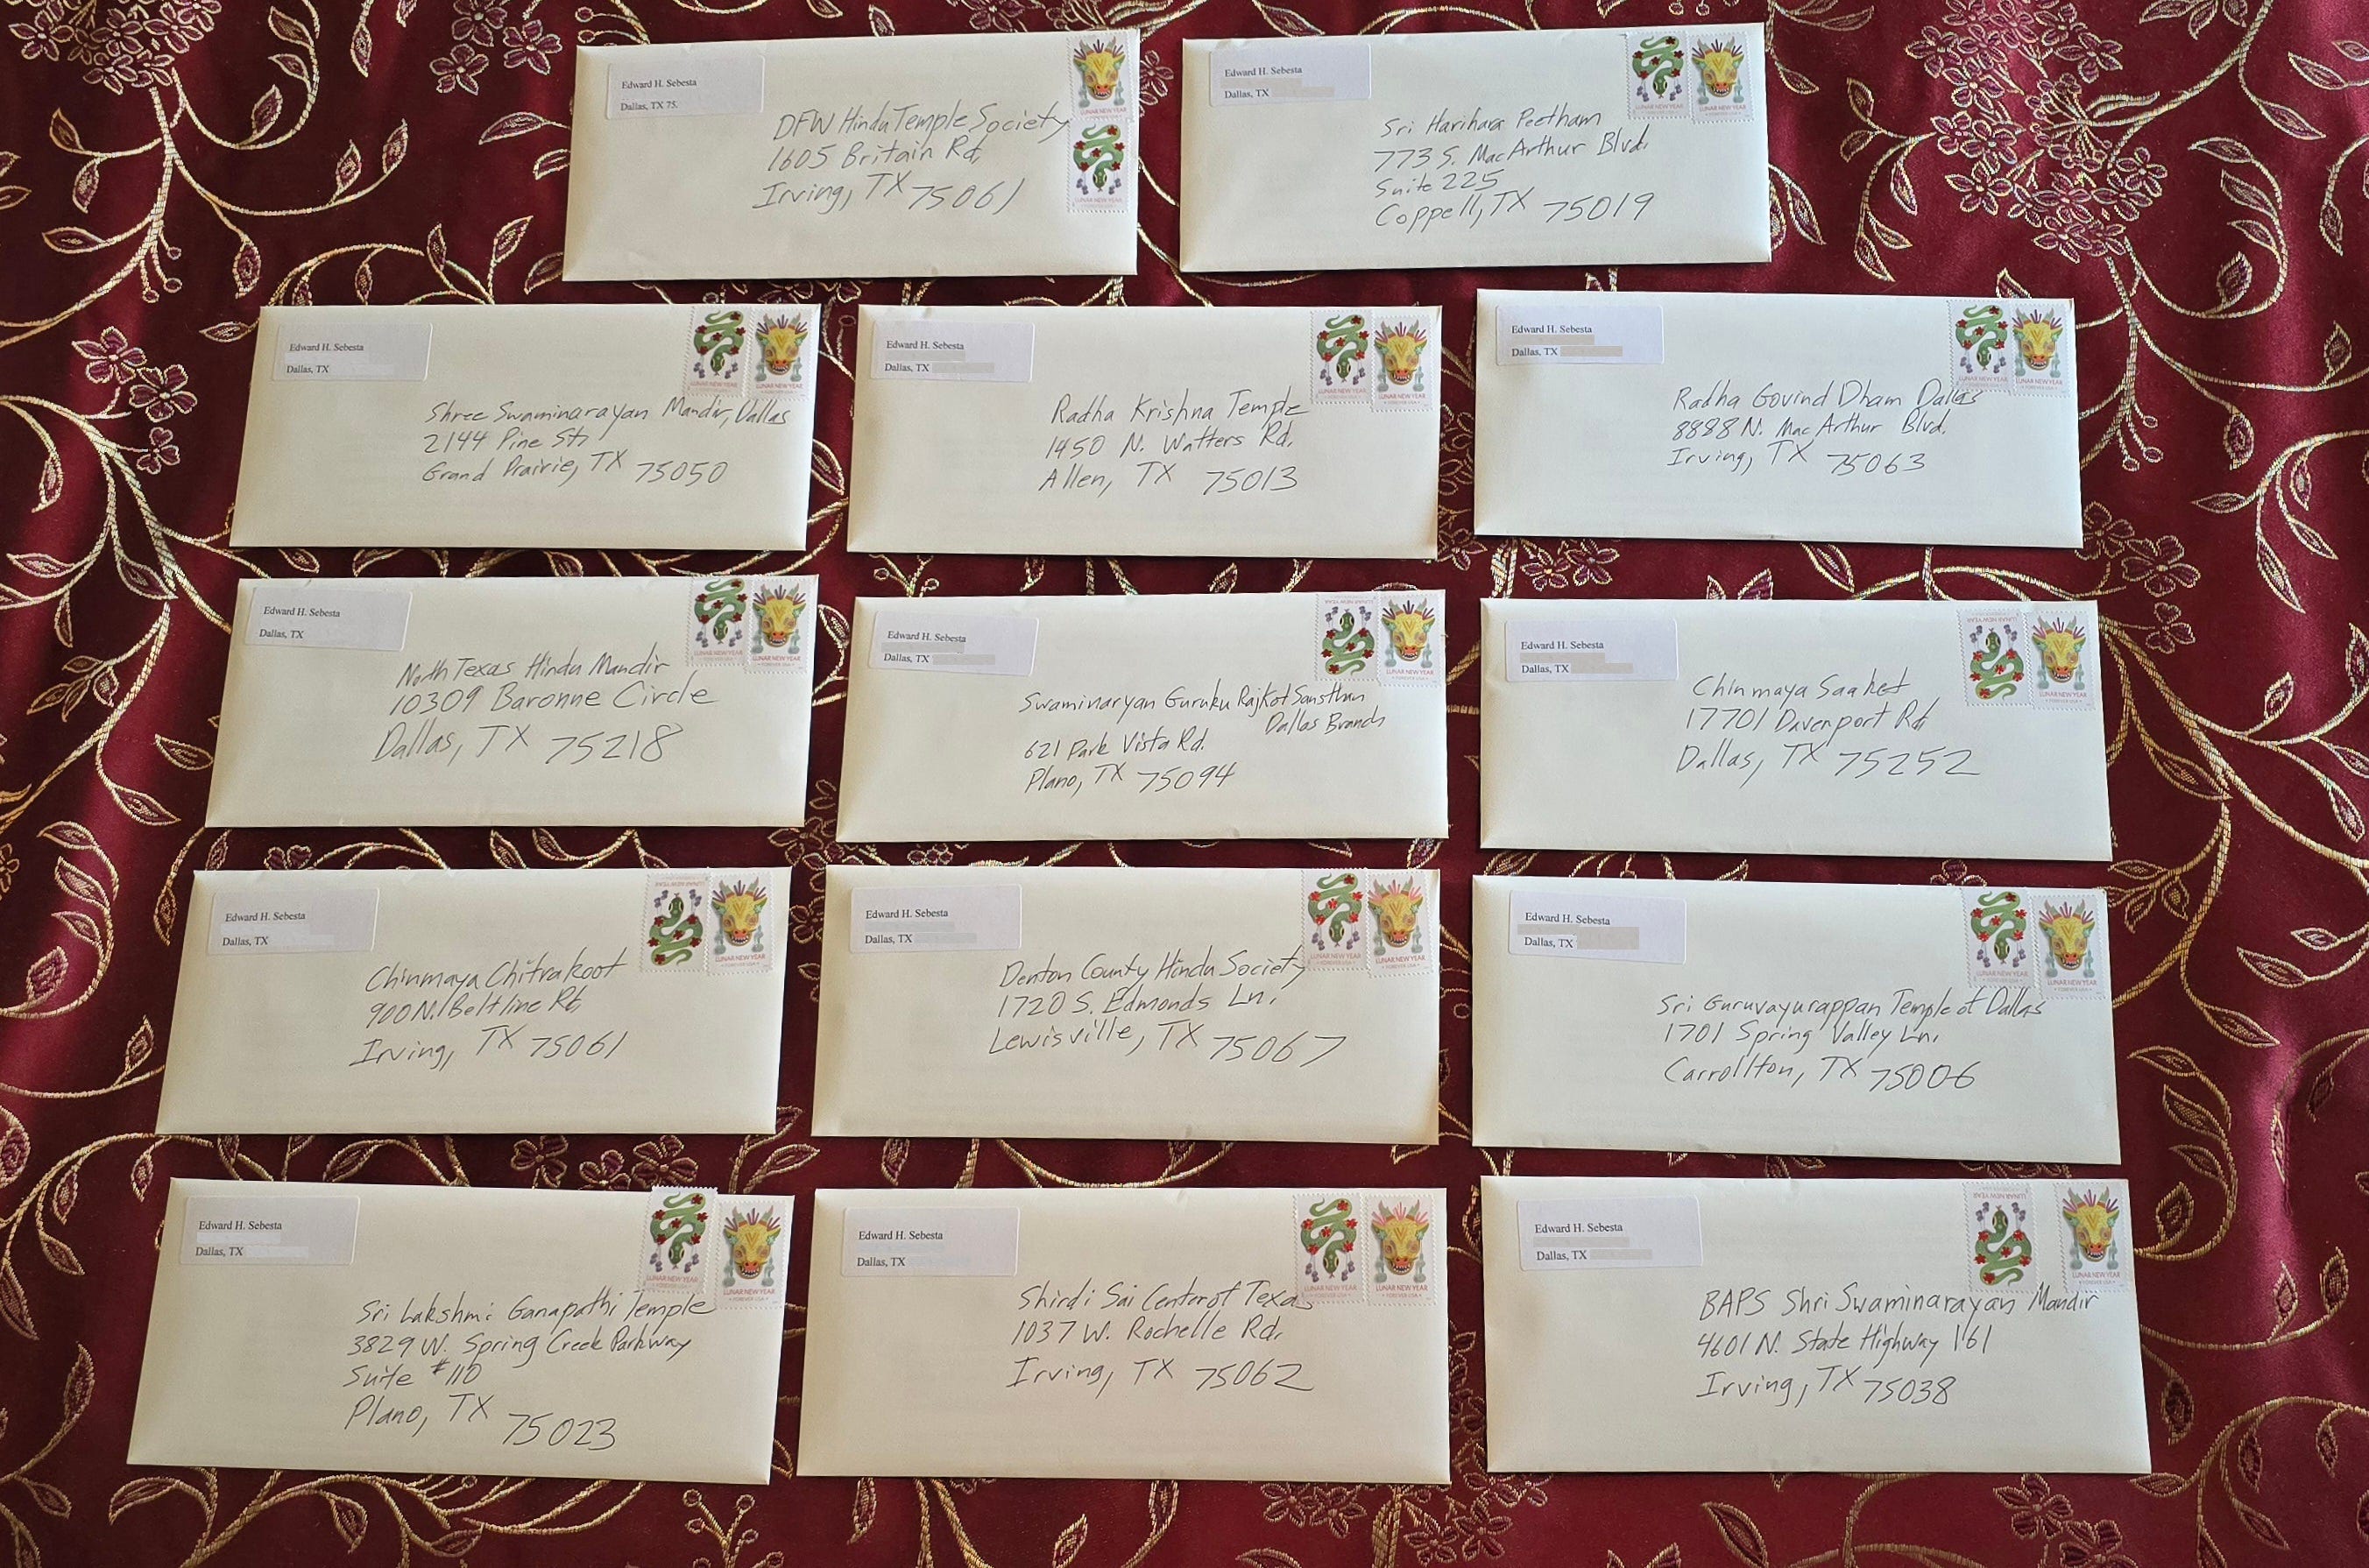 Edward H. Sebesta
Dallas, TX 75.
DFW Hindu Temple Society
1605 Britain Rd.
Irving, TX 75061
LUNAR NEW YEAR
LUNAR NEW YEAR
Edward H. Sebesta
Dallas, TX
Sri Harihara Peetham
773 S. MacArthur Blvd.
Suite 225
Coppell, TX 75019
LUNAR NEW YEAR LUNAR NEW YEAR
Edward H. Sebesta
Dallas, TX
Shree Swaminarayan Mandir, Dallas
2144 Pine St.
Grand Prairie, TX 75050
LUNAR NEW YEAR LUNAR NEW YEAR
FOREVER USA
Edward H. Sebesta
Dallas, TX
Radha Krishna Temple
1450 N. Watters Rd.
Allen, TX 75013
LUNAR NEW YEAR LUNAR NEW YEAR
FOREVER USA
Edward H. Sebesta
Dallas, TX
Radha Govind Dham Dallas
8888 N. MacArthur Blvd.
Irving, TX 75063
LUNAR NEW YEAR LUNAR NEW YEAR
FOREVER USA
Edward H. Sebesta
Dallas, TX
North Texas Hindu Mandir
10309 Baronne Circle
Dallas, TX 75218
LUNAR NEW YEAR LUNAR NEW YEAR
FOREVER USA
Edward H. Sebesta
Dallas, TX
Swaminaryan Guruku Rajkot Sansthan
Dallas Branch
621 Park Vista Rd.
Plano, TX 75094
LUNAR NEW YEAR LUNAR NEW YEAR
FOREVER USA
Edward H. Sebesta
Dallas, TX
Chinmaya Saaket
17701 Davenport Rd.
Dallas, TX 75252
LUNAR NEW YEAR LUNAR NEW YEAR
FOREVER USA
Edward H. Sebesta
Dallas, TX
Chinmaya Chitrakoot
900 N. Beltline Rd.
Irving, TX 75061
LUNAR NEW YEAR LUNAR NEW YEAR
FOREVER USA
Edward H. Sebesta
Dallas, TX
Denton County Hindu Society
1720 S. Edmonds Ln.
Lewisville, TX 75067
LUNAR NEW YEAR LUNAR NEW YEAR
FOREVER USA
Edward H. Sebesta
Dallas, TX
Sri Guruvayurappan Temple of Dallas
1701 Spring Valley Ln.
Carrollton, TX 75006
LUNAR NEW YEAR LUNAR NEW YEAR
FOREVER USA
Edward H. Sebesta
Dallas, TX
Sri Lakshmi Ganapathi Temple
3829 W. Spring Creek Parkway
Suite #110
Plano, TX 75023
LUNAR NEW YEAR LUNAR NEW YEAR
FOREVER USA
Edward H. Sebesta
Dallas, TX
Shirdi Sai Center of Texas
1037 W. Rochelle Rd.
Irving, TX 75062
LUNAR NEW YEAR LUNAR NEW YEAR
FOREVER USA
Edward H. Sebesta
Dallas, TX
BAPS Shri Swaminarayan Mandir
4601 N. State Highway 161
Irving, TX 75038
LUNAR NEW YEAR LUNAR NEW YEAR
FOREVER USA